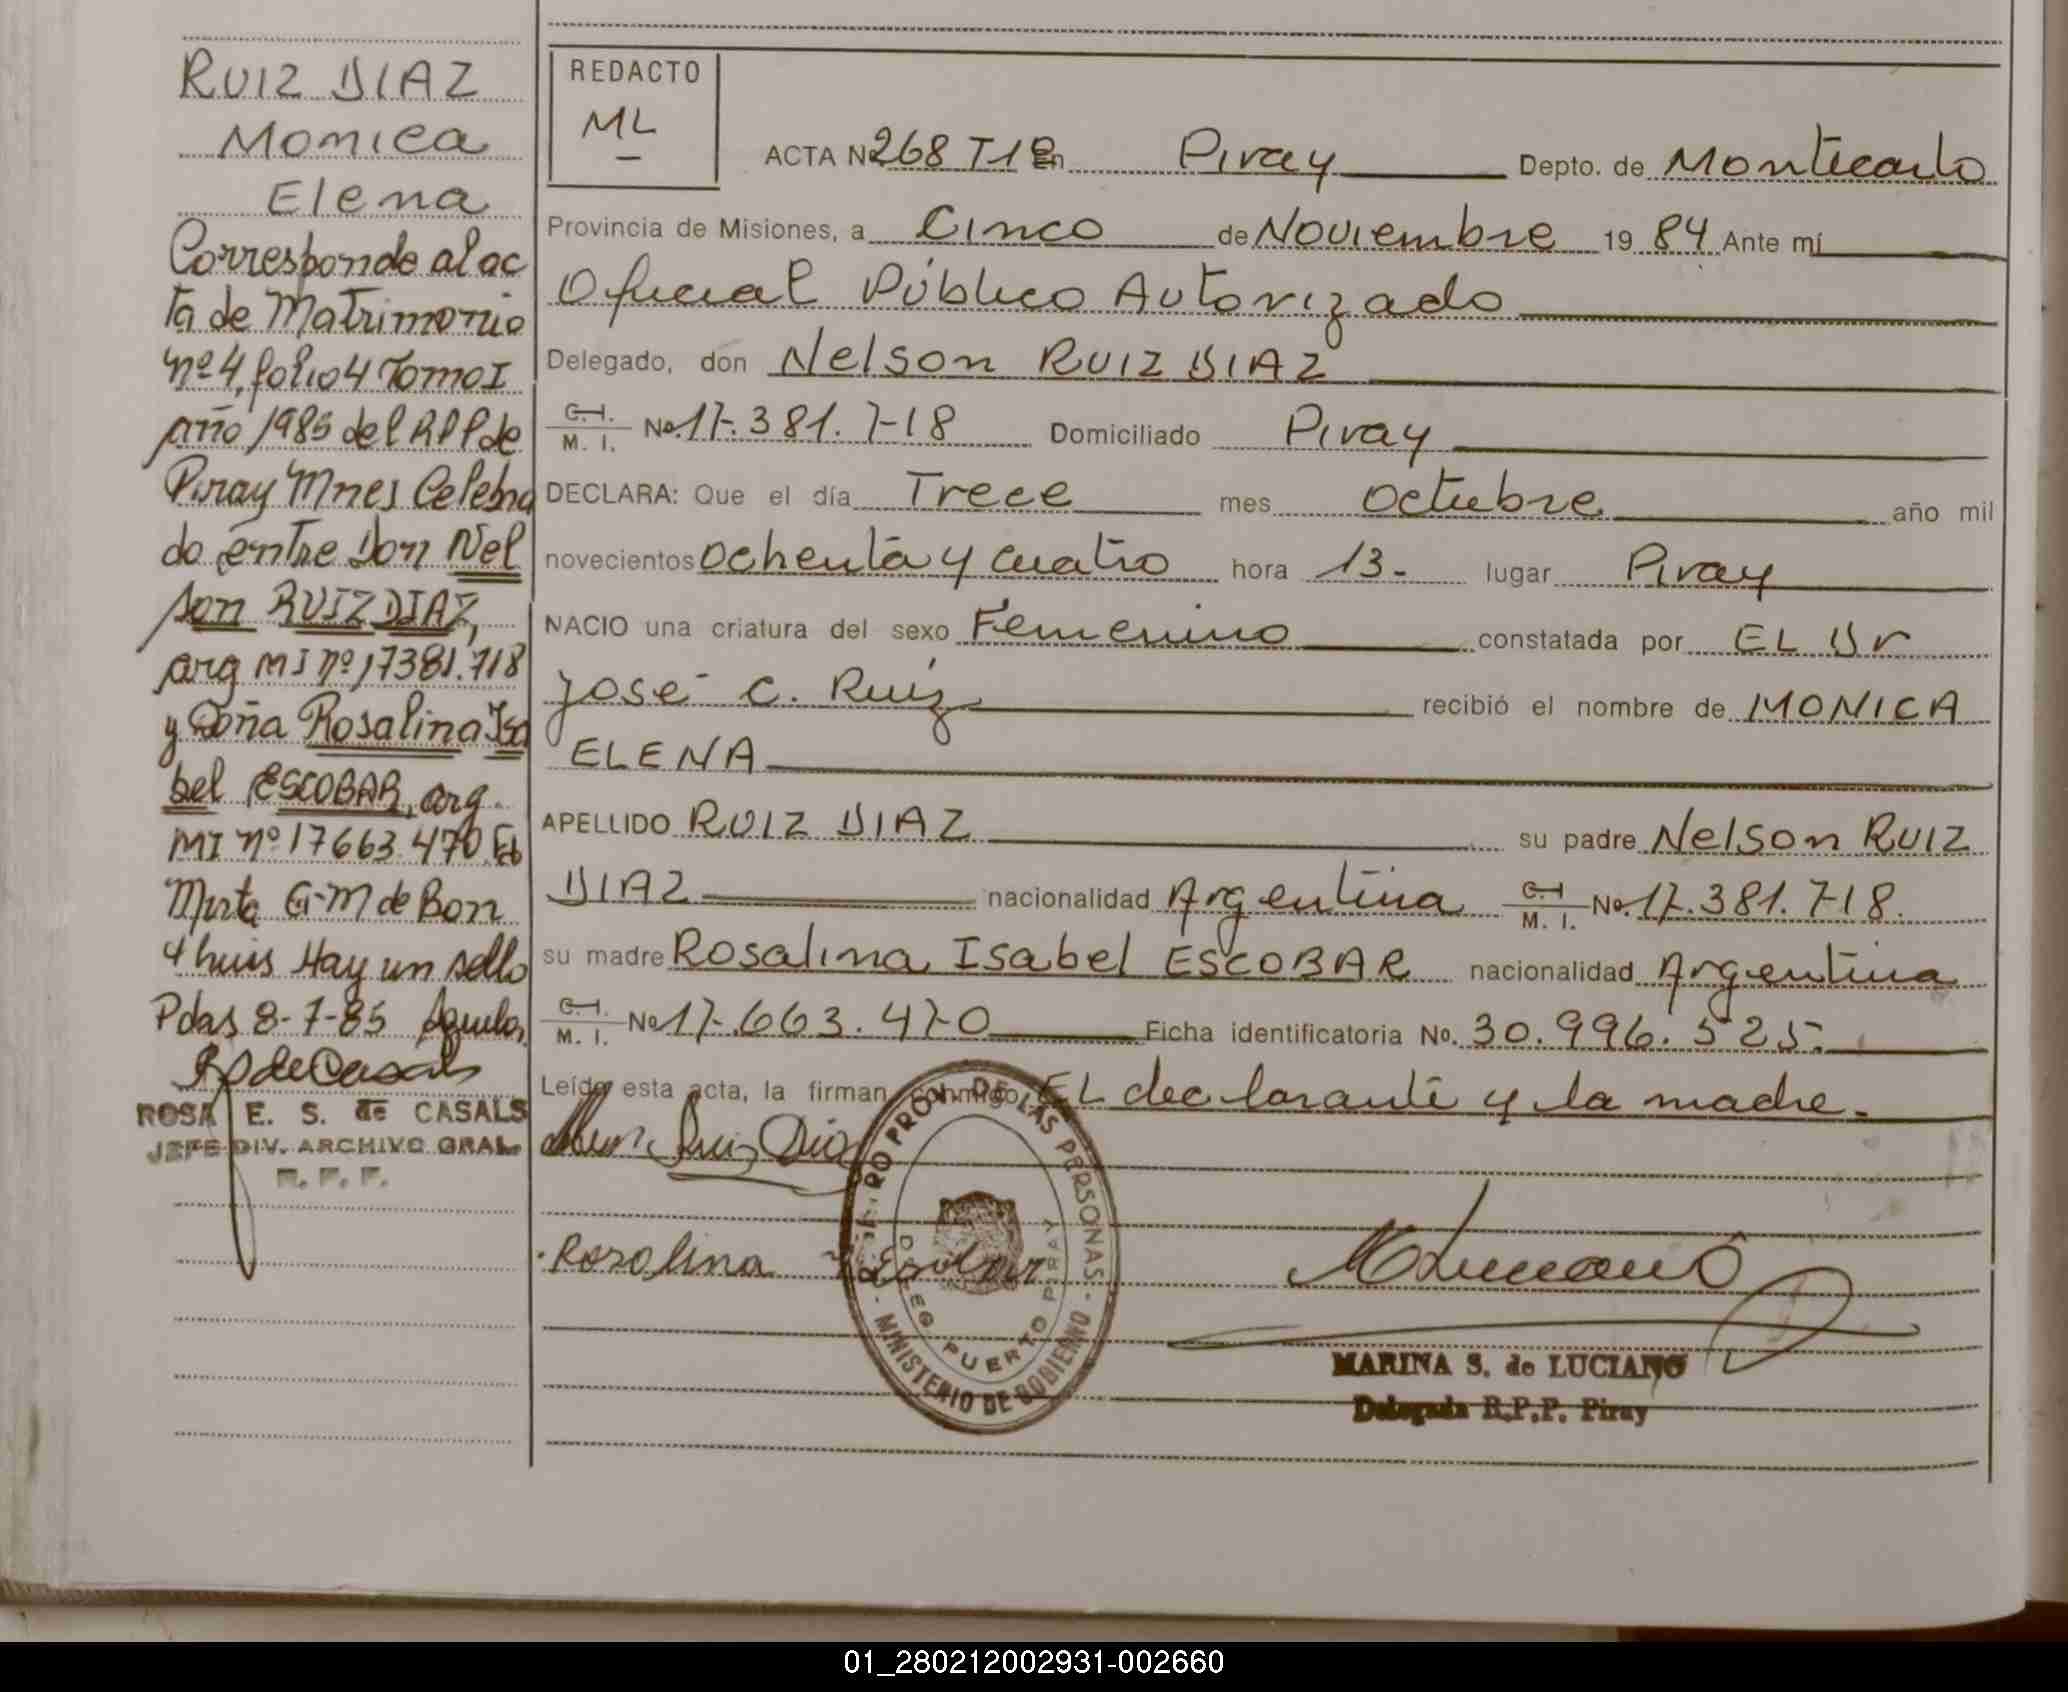 RUIZ DIAZ
Monica
Elena
Corresponde al ac
ta de Matrimonio
nº 4, folio 4 Tomo I
año 1985 del RPP de
Piray Mnes Celebra
do entre Don Nel
son RUIZ DIAZ,
arg MI nº 17381.718
y Doña Rosalina Isa
bel ESCOBAR, arg.
MI nº 17663.470. Fb
Mirta G-M de Bon
Hay un sello
Pdas 8-7-85
R S de Casals
ROSA E. S. de CASALS
JEFE DIV. ARCHIVO GRAL.
R. P. P.
REDACTO
ML
ACTA Nº 268 T1º En Piray Depto. de Montecarlo
Provincia de Misiones, a Cinco de Noviembre 19 84 Ante mí
Oficial Público Autorizado
Delegado, don Nelson RUIZ DIAZ
C. I. M. I. No. 17.381.718 Domiciliado Piray
DECLARA: Que el día Trece mes octubre año mil
novecientos ochenta y cuatro hora 13.- lugar Piray
NACIO una criatura del sexo Femenino constatada por EL Dr
José C. Ruiz recibió el nombre de MONICA
ELENA
APELLIDO RUIZ DIAZ su padre Nelson RUIZ
DIAZ nacionalidad Argentina C. I. M. I. No. 17.381.718.
su madre Rosalina Isabel ESCOBAR nacionalidad Argentina
C. I. M. I. No 17.663.470 Ficha identificatoria No. 30.996.525.
Leída esta acta, la firman conmigo EL declarante y la madre.-
Ruiz Diaz
Rosalina Escobar
REGISTRO PROV. DE LAS PERSONAS
DELEG PUERTO PIRAY
- MINISTERIO DE GOBIERNO -
M Luciano
MARINA S. de LUCIANO
Delegada R.P.P. Piray
01_280212002931-002660